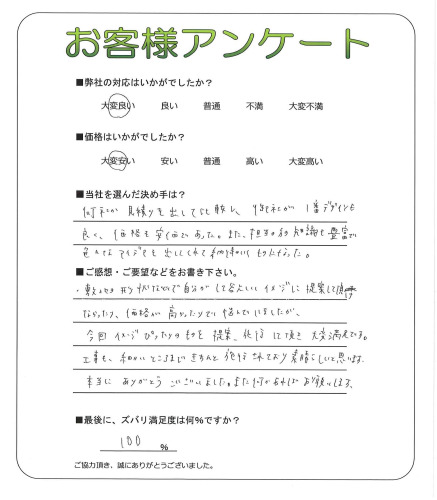 お客様アンケート
■弊社の対応はいかがでしたか?
大変良い 良い 普通 不満 大変不満
■価格はいかがでしたか?
大変安い 安い 普通 高い 大変高い
■当社を選んだ決め手は?
何社か見積りを出してもらい比較し、御社が1番デザインも
良く、価格も安価であった。また、担当の方の知識も豊富で
色々なアイデアを出してくれて
■ご感想・ご要望などをお書き下さい。
・敷地が 自分がしてほしいイメージに提案して頂け
なかったり、価格が高かったりで悩んでいましたが、
今回イメージぴったりのものを提案、施行して頂き大変満足です。
工事も、細かいところまできちんと施行されており素晴らしいと思います。
本当にありがとうございました。また何かあればお願いします。
■最後に、ズバリ満足度は何%ですか?
100 %
ご協力頂き、誠にありがとうございました。